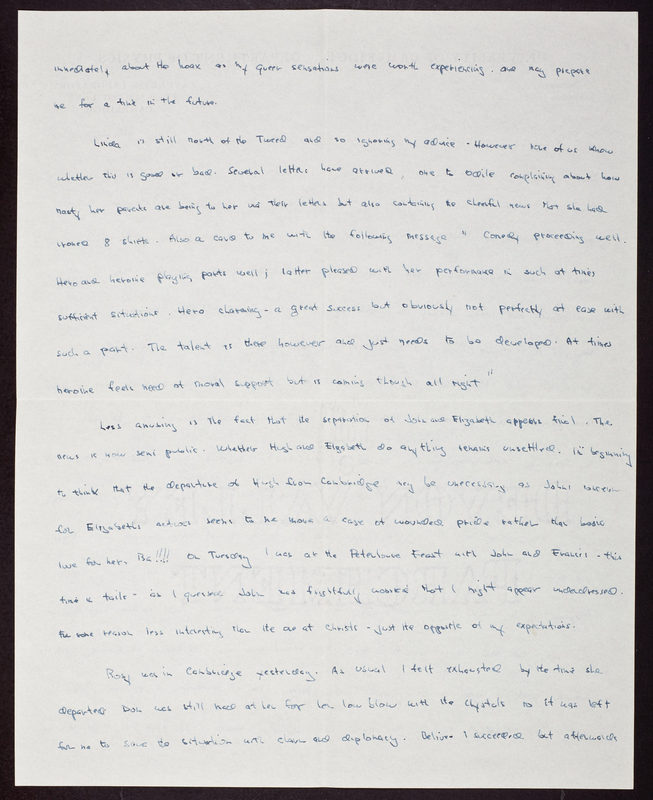 immediately about the hoax as my queer sensations were worth experiencing and may prepare
me for a time in the future.
Linda is still north of the Tweed and so ignoring my advice. However none of us know
whether this is good or bad. Several letters have arrived, one to Odile complaining about how
nasty her parents are being to her in their letters but also containing the cheerful news that she had
ironed 8 shirts. Also a card to me with the following message " Comedy proceeding well.
Hero and heroine playing parts well; latter pleased with her performance in such at times
sufficient situations. Hero charming - a great success but obviously not perfectly at ease with
such a part. The talent is there however and just needs to be developed. At times
heroine feels need of moral support but is coming though all right"
Less amusing is the fact that the separation of John and Elizabeth appears final. The
news is now semi public. Whether Hugh and Elizabeth do anything remains unsettled. I'm beginning
to think that the departure of Hugh from Cambridge may be unnecessary as Johns concern
for Elizabeths actions seems to me more a case of wounded pride rather than basic
love for her. Bah!!!! On Tuesday I was at the Peterhouse Feast with John and Francis - this
time in tails - as I guessed John was frightfully worried that I might appear underdressed.
For some reason less interesting than the one at Christs - just the opposite of my expectations.
Rosy was in Cambridge yesterday. As usual I felt exhausted by the time she
departed. Don was still mad at her for her low blow with the crystals so it was left
for me to save the situation with charm and diplomacy. Believe I succeeded but afterwards